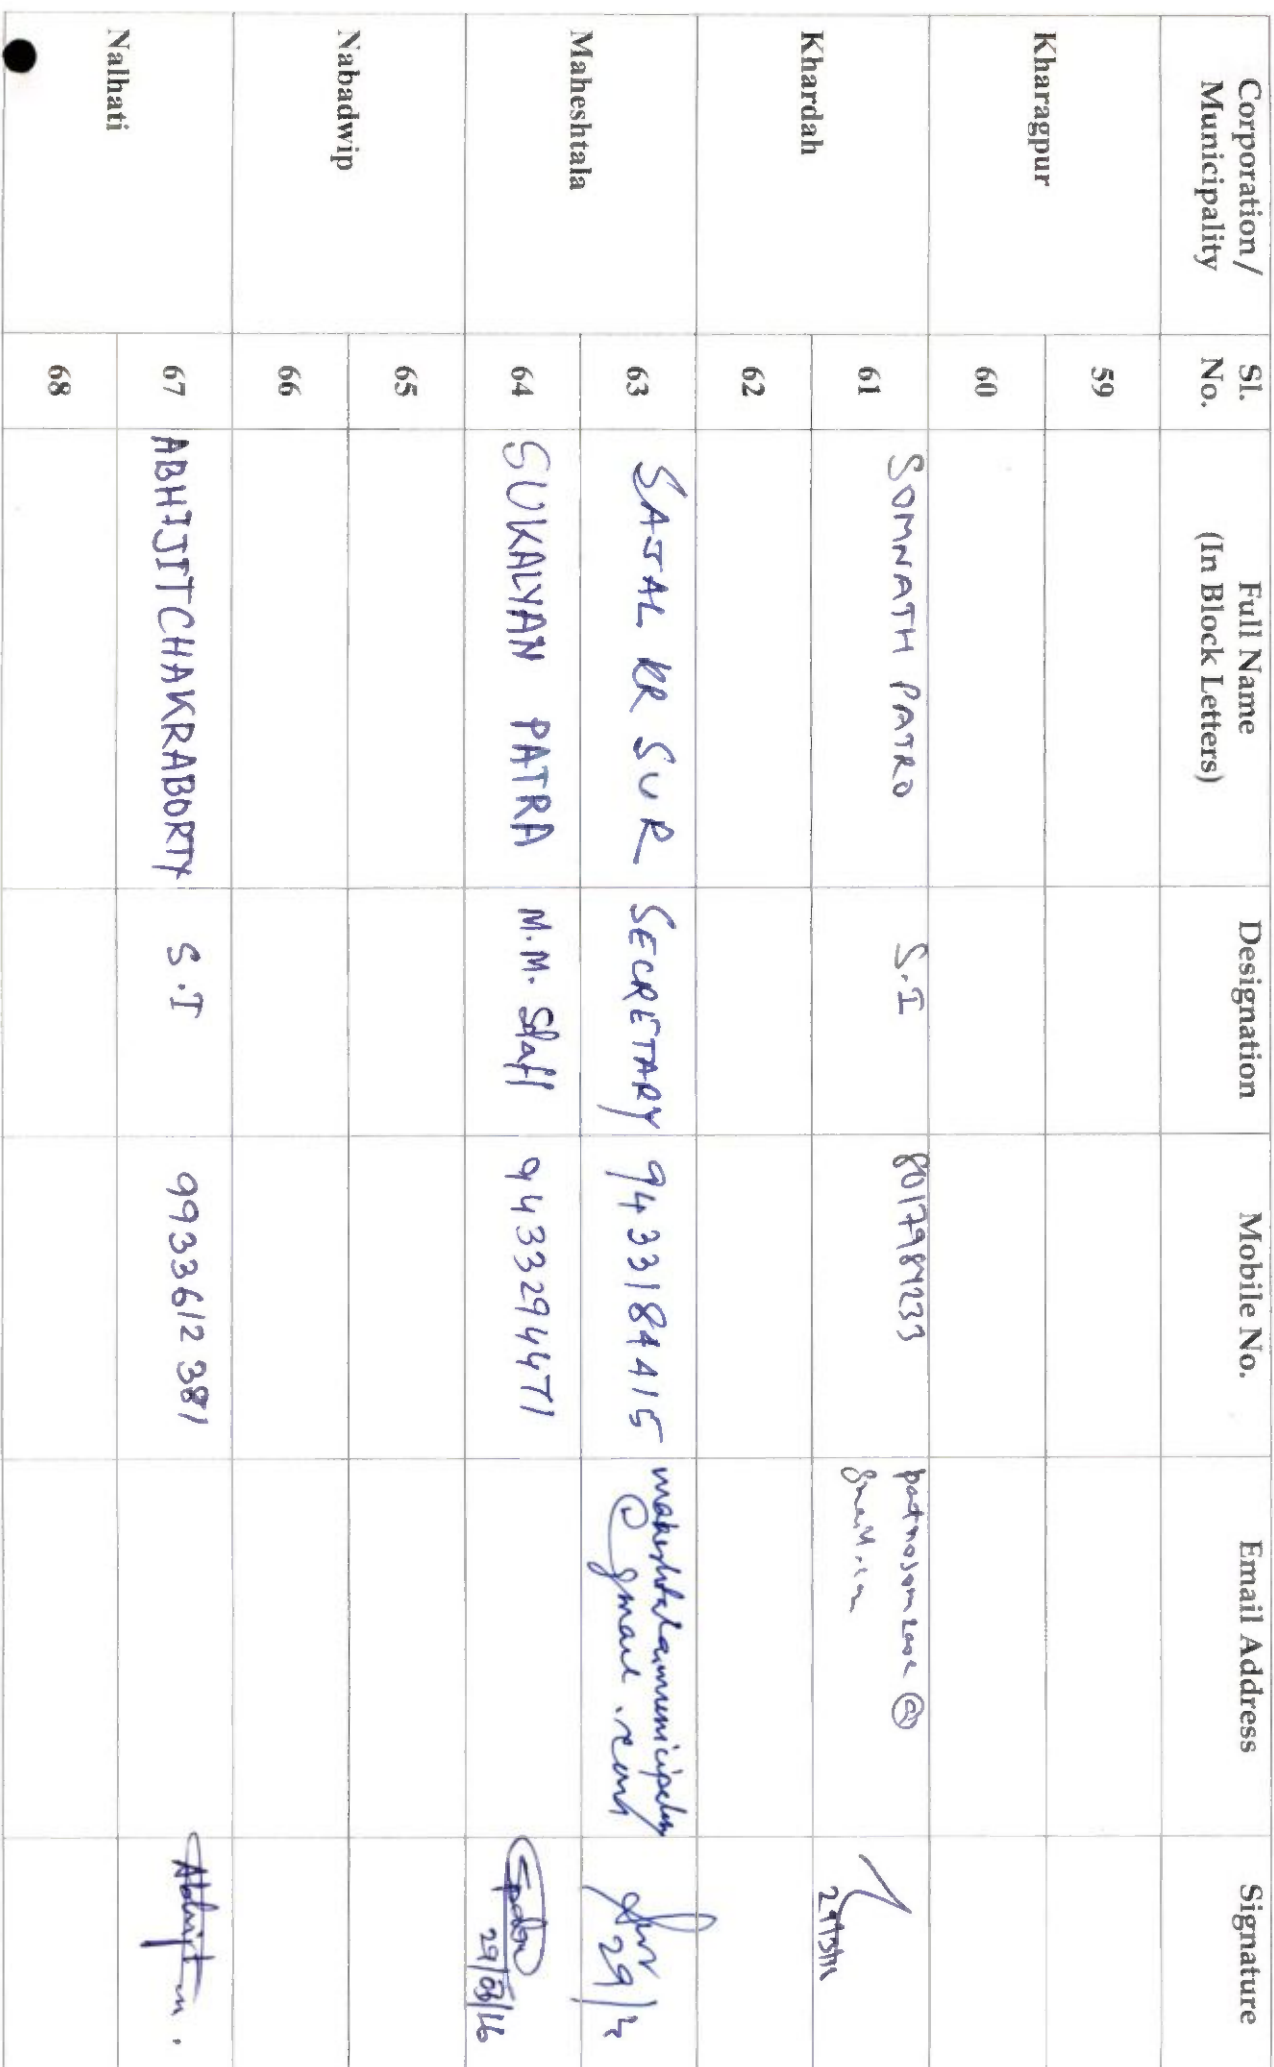 Corporation/
Municipality
Sl.
No.
Full Name
(In Block Letters)
Designation
Mobile No.
Email Address
Signature
Kharagpur
59
60
Khardah
61 SOMNATH PATRO S.I 8017984233
62
Maheshtala
63 SAJAL KR SUR SECRETARY 9433184415 maheshtalamunicipality
@gmail.com
29/
64 SUKALYAN PATRA M.M. Staff 9433294471
29/03/16
Nabadwip
65
66
Nalhati
67 ABHIJIT CHAKRABORTY S.I 9933612381
68